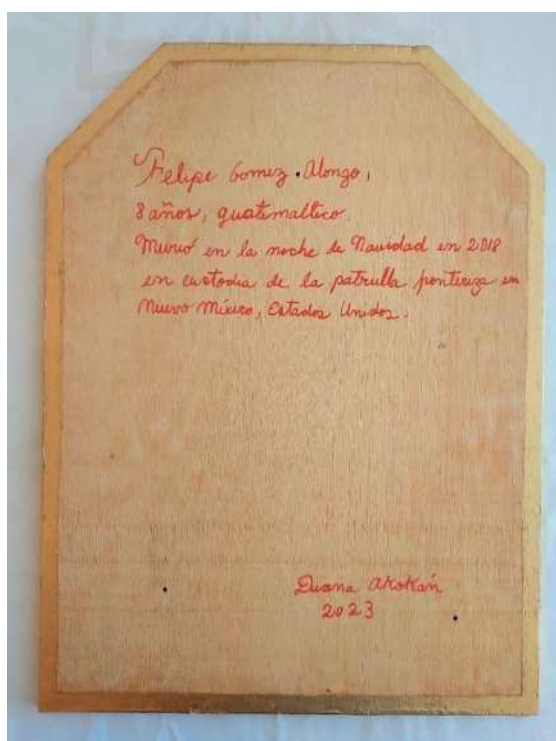 Felipe Gomez Alonzo,
8 años, guatemalteco.
Murió en la noche de Navidad en 2018
en custodia de la patrulla fronteriza en
Nuevo México, Estados Unidos.
Duana Akokán
2023